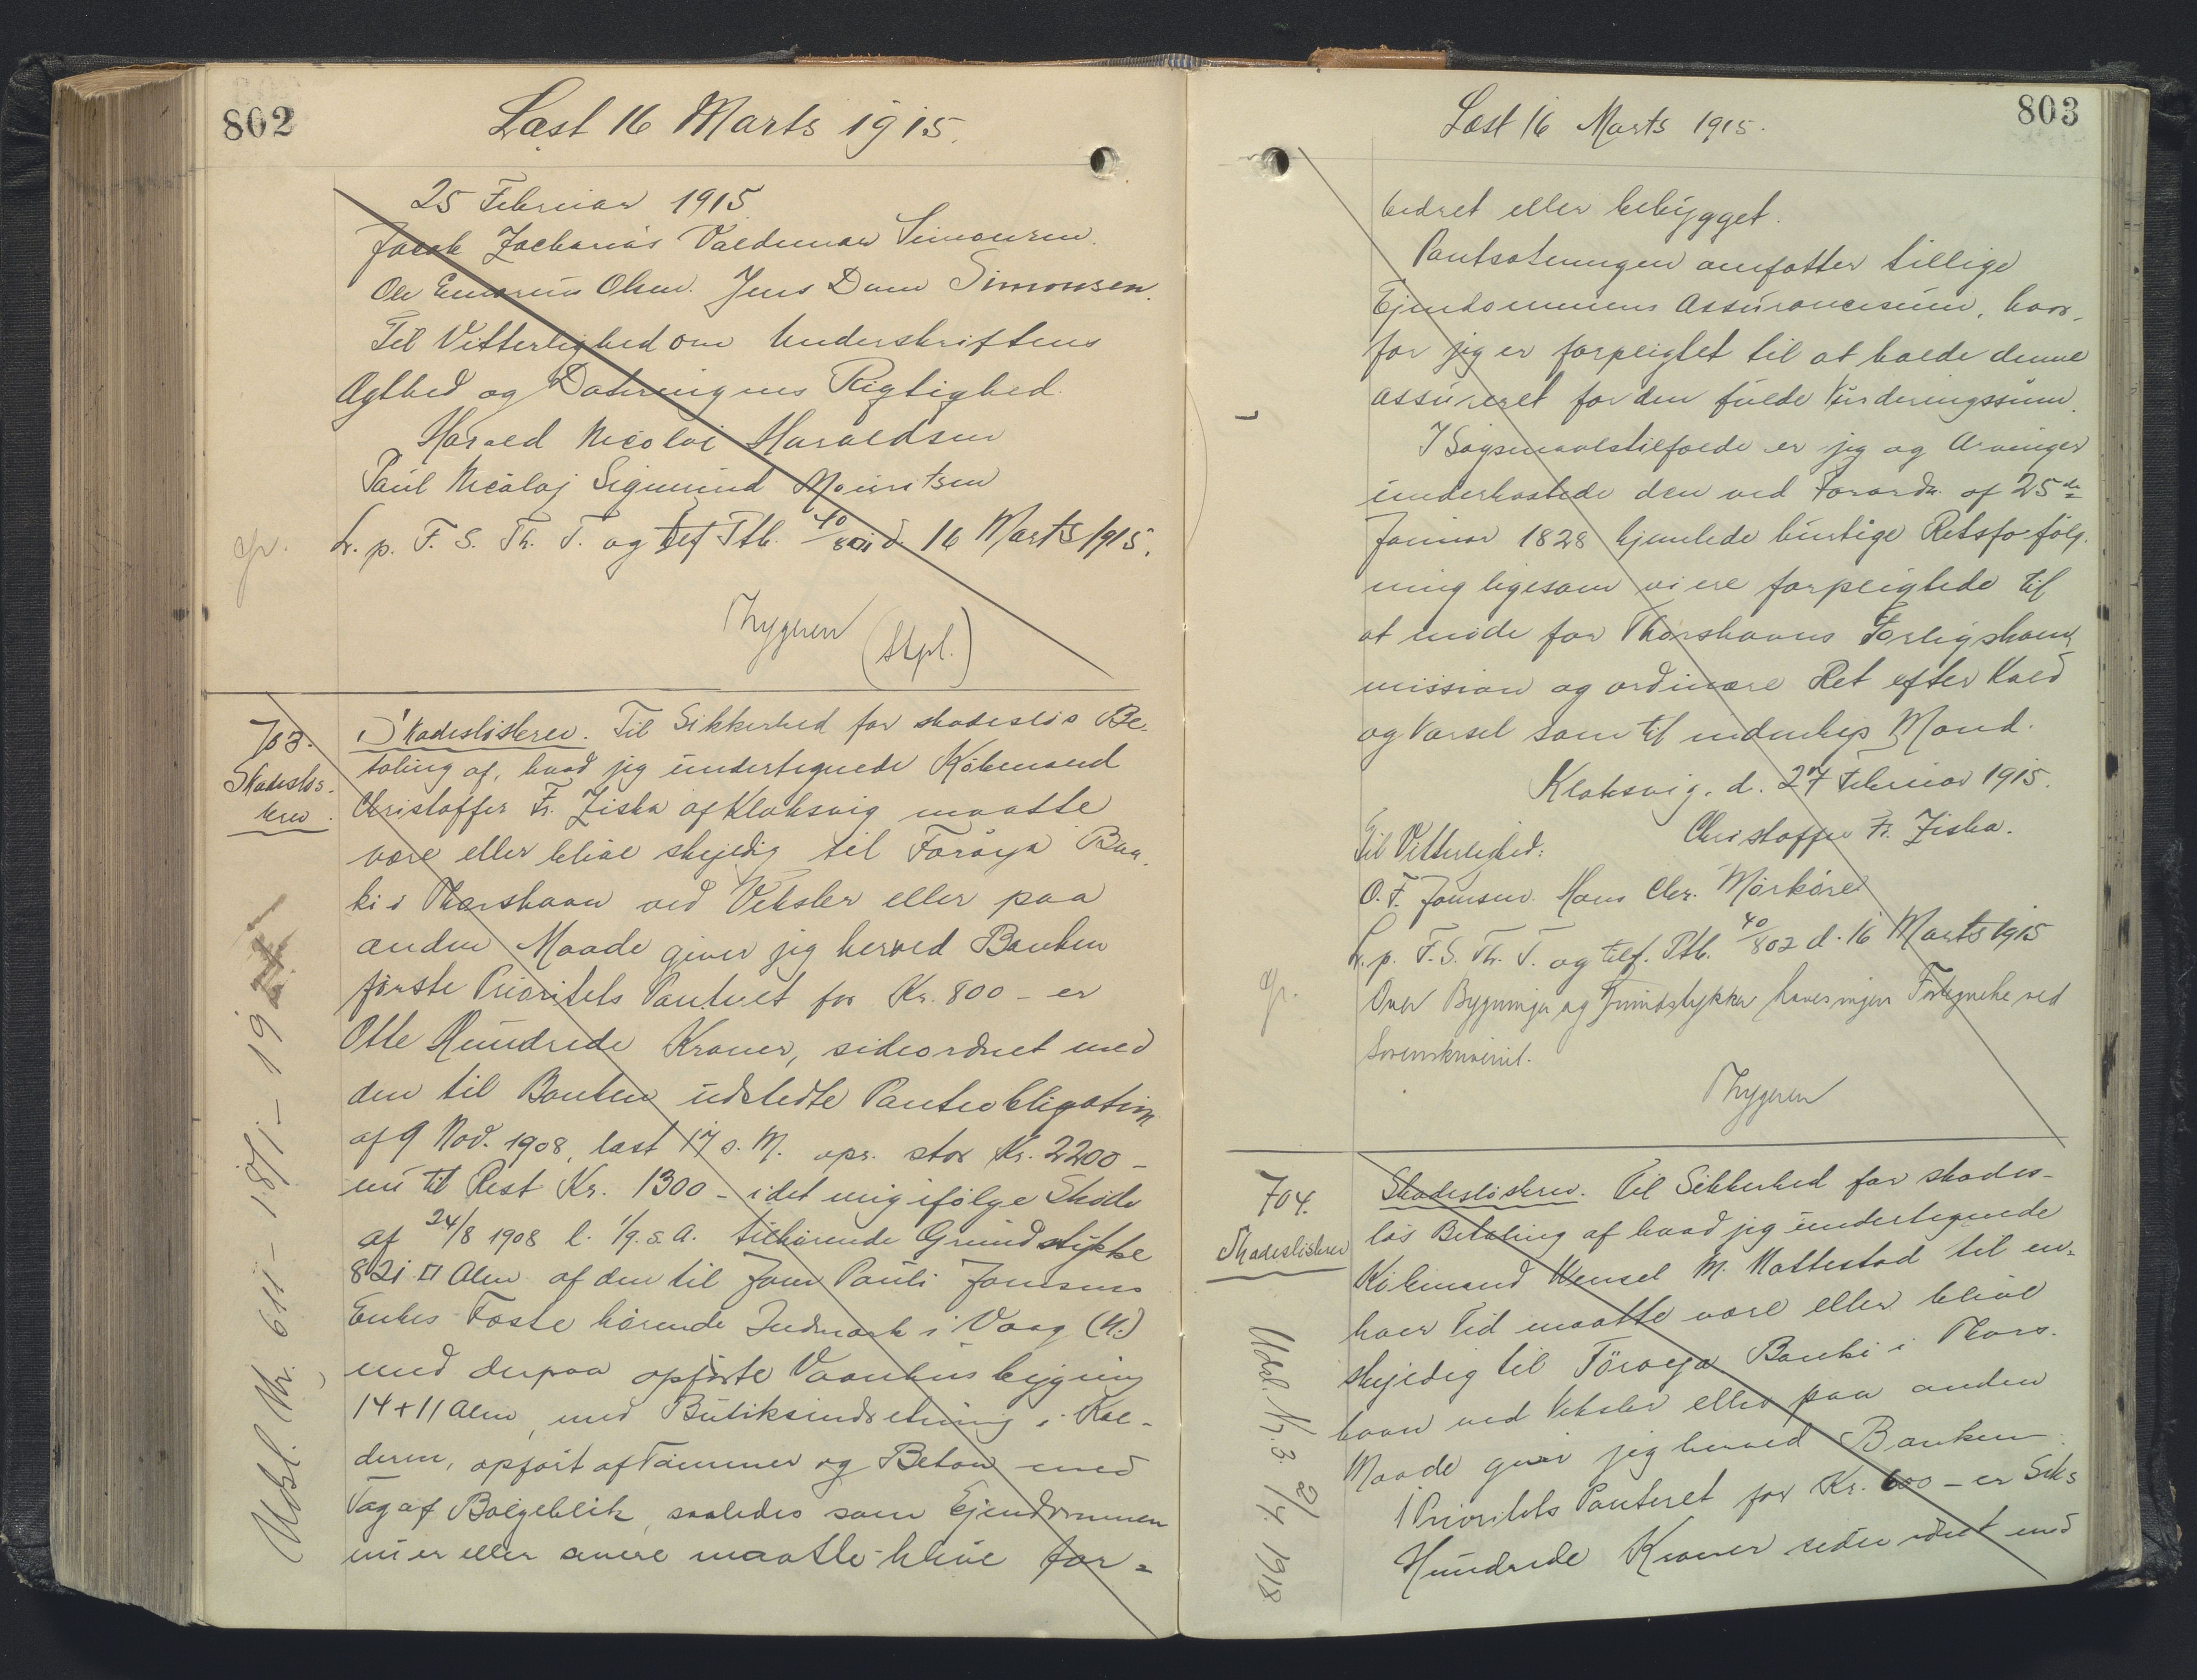 802
Læst 16 Marts 1915.
25 Februar 1915
Jacob Zacharias Valdemar Simonsen.
Ole Olsen. Jens Dam Simonsen.
Til Vitterlighed om Underskriftens
Ægthed og Dateringens Rigtighed.
Harald Nicolai Haraldsen
Paul Nicolaj Sigmund Mouritsen
L. p. F. S. Th. T. og tilf Ptb. 40/801 d. 16 Marts 1915.
gr.
Thygesen
(Stpl.)
703.
Skadesløs-
brev.
Skadesløsbrev. Til Sikkerhed for skadesløs Be-
taling af, hvad jeg undertegnede Købmand
Christoffer Fr. Ziska af Klaksvig maatte
være eller blive skyldig til Føroya Ban-
ki i Thorshavn ved Veksler eller paa
anden Maade giver jeg herved Banken
første Prioritets Panteret for Kr. 800 - er
Otte Hundrede Kroner, sideordnet med
den til Banken udstedte Panteobligation
af 9 Nov. 1908, læst 17 s. M. opr. stor Kr. 2200 -
nu til Rest Kr. 1300 - i det mig ifølge Skøde
af 24/8 1908 l. 1/9. s. A. tilhørende Grundstykke
821 □ Alen af den til Joen Pauli Joensens
Enkes Fæste hørende Indmark i Vaag (N.)
med derpaa opførte Vaanhusbygning
14 + 11 Alen, med Butiksindretning i Kæl-
deren, opført af Tømmer og Beton med
Tag af Bølgeblik, saaledes som Ejendommen
nu er eller senere maatte blive for-
Udsl. Nr. 611 - 18/1 - 19
803
Læst 16 Marts 1915.
bedret eller bebygget.
Pantsætningen omfatter tillige
Ejendommens Assurancesum, hvor-
for jeg er forpligtet til at holde denne
assureret for den fulde Vurderingssum.
I Søgsmaalstilfælde er jeg og Arvinger
underkastede den ved Forordn. af 25de
Januar 1828 hjemlede hurtige Retsforfølg-
ning ligesom vi ere forpligtede til
at møde for Thorshavns Forligskom-
mission og ordinære Ret efter Kald
og Varsel som til indenbys Mand.
Klaksvig, d. 27 Februar 1915.
Christoffer Fr. Ziska.
Til Vitterlighed:
O. F. Joensen. Hans Chr. Mørkøre
L. p. F. S. Th. T. og tilf. Ptb. 40/802 d. 16 Marts 1915
gr.
Over Bygninger og Grundstykker haves ingen Fortegnelse ved
Sorenskriveriet.
Thygesen
704.
Skadesløsbrev
Skadesløsbrev. Til Sikkerhed for skades-
løs Betaling af hvad jeg undertegnede
Købmand Wensel M. Mattestad til en-
hver Tid maatte være eller blive
skyldig til Føroya Banki i Thors-
havn ved Veksler eller paa anden
Maade giver jeg herved Banken
1 Prioritets Panteret for Kr. 600 - er Seks
Hundrede Kroner sideordnet med
Udsl. Nr. 3. 2/4. 1918